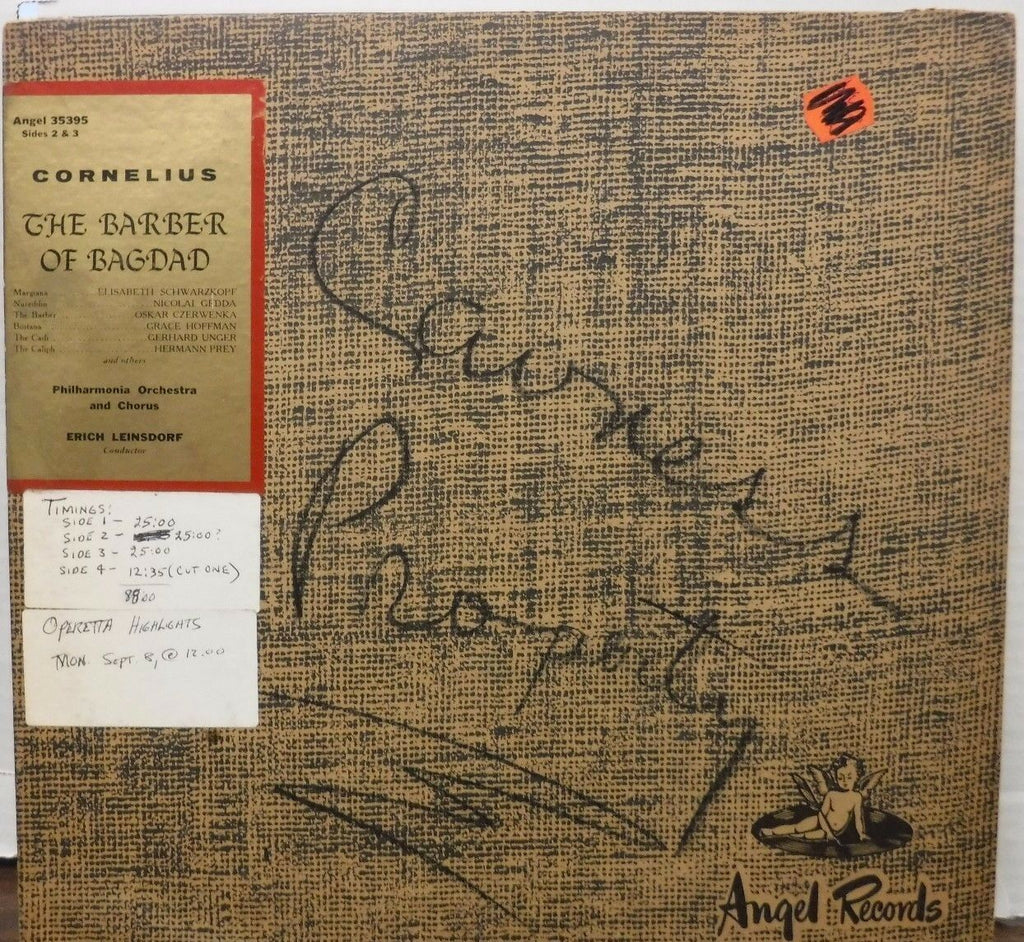 Angel 35395
Sides 2 & 3
CORNELIUS
THE BARBER
OF BAGDAD
Margiana ELISABETH SCHWARZKOPF
Nureddin NICOLAI GEDDA
The Barber OSKAR CZERWENKA
Bostana GRACE HOFFMAN
The Cadi GERHARD UNGER
The Caliph HERMANN PREY
and others
Philharmonia Orchestra
and Chorus
ERICH LEINSDORF
Conductor
TIMINGS:
SIDE 1 - 25:00
SIDE 2 - 25:00?
SIDE 3 - 25:00
SIDE 4 - 12:35 (CUT ONE)
OPERETTA HIGHLIGHTS
MON. SEPT. 8, @ 12:00
Angel Records